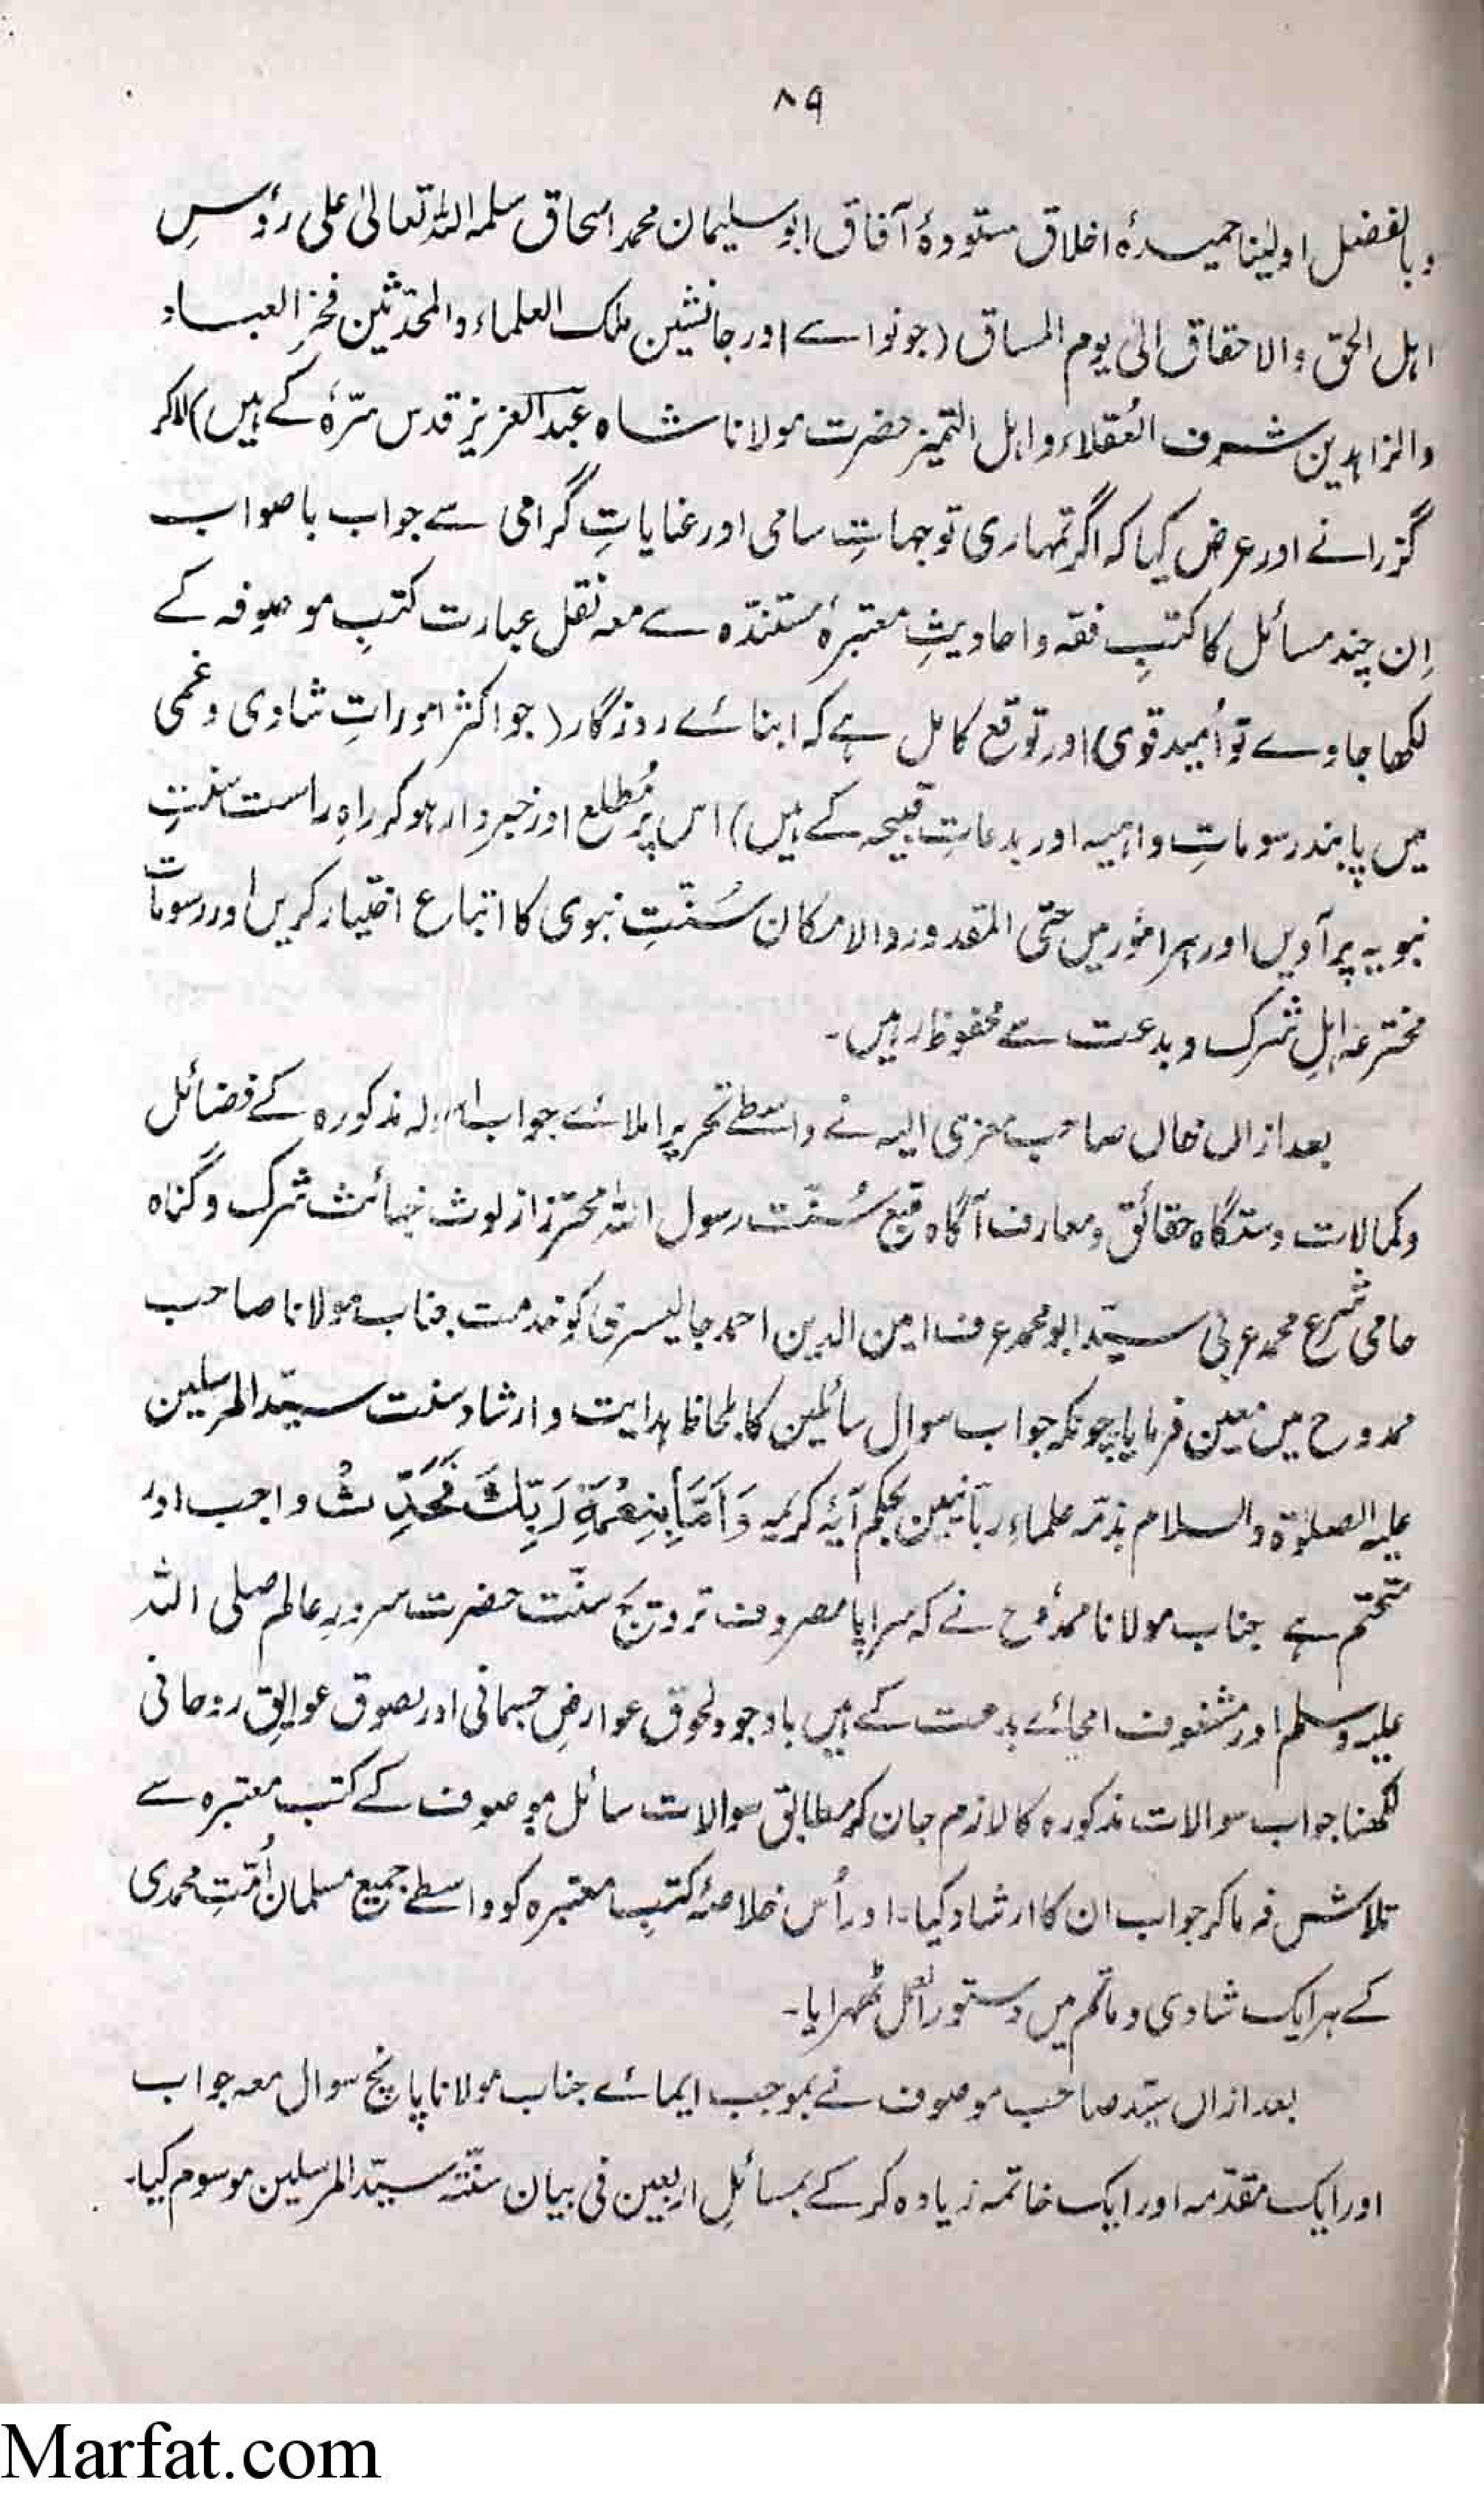 ۸۹
وبالفضل اولینا حمیدۂ اخلاق ستودۂ آفاق ابو سلیمان محمد اسحاق سلمہ اللہ تعالیٰ علی رؤسِ
اہل الحق والاحقاق الیٰ یوم المساق (جو نواسے اور جانشین ملک العلماء والمحدثین فخرِ العباد
والزاہدین شرف العُقلاء واہل التمیز حضرت مولانا شاہ عبدالعزیز قدس سرّہٗ کے ہیں) لاکر
گزرانے اور عرض کیا کہ اگر تمہاری توجہاتِ سامی اور عنایاتِ گرامی سے جواب باصواب
اِن چند مسائل کا کتبِ فقہ واحادیثِ معتبرۂ مستندہ سے معہ نقل عبارت کتبِ موصوفہ کے
لکھا جاوے تو اُمید قوی اور توقع کامل ہے کہ ابنائے روزگار (جو اکثر اموراتِ شادی وغمی
میں پابند رسوماتِ واہیہ اور بدعاتِ قبیحہ کے ہیں) اس پر مُطلع اور خبردار ہوکر راہِ راست سنتِ
نبویہ پر آویں اور ہر امور میں حتی المقدور والامکان سُنّتِ نبوی کا اتباع اختیار کریں اور رسومات
مخترعہ اہلِ شرک وبدعت سے محفوظ رہیں۔
بعد ازاں خاں صاحب معزی الیہ نے واسطے تحریر املائے جواب اسولہ مذکورہ کے فضائل
وکمالات دستگاہ حقائق ومعارف آگاہ متبع سُنّت رسول اللہ محترز از لوث خبائث شرک وگناہ
حامی شرع محمد عربی سیّد ابو محمد عرف امین الدین احمد جالیسری کو خدمت جناب مولانا صاحب
ممدوح میں معین فرمایا چونکہ جواب سوال سائلین کا بلحاظ ہدایت وارشاد سنت سیّد المرسلین
علیہ الصلوٰۃ والسلام بذمّہ علماء ربّانیین بحکم آیۂ کریمہ وَاَمَّا بِنِعْمَةِ رَبِّكَ فَحَدِّثْ واجب اور
متحتم ہے جناب مولانا ممدوح نے کہ سراپا مصروف ترویج سنّت حضرت سرورِ عالم صلی اللہ
علیہ وسلم اور مشغوف امحائے بدعت کے ہیں باوجود لحوق عوارضِ جسمانی اور لصوق عوایقِ روحانی
لکھنا جواب سوالات مذکورہ کا لازم جان کر مطابق سوالات سائل موصوف کے کتب معتبرہ سے
تلاش فرماکر جواب ان کا ارشاد کیا۔ اور اُس خلاصۂ کتبِ معتبرہ کو واسطے جمیع مسلمان اُمّتِ محمدی
کے ہر ایک شادی وماتم میں دستور العمل ٹھہرایا۔
بعد ازاں سیّد صاحب موصوف نے بموجب ایمائے جناب مولانا پانچ سوال معہ جواب
اور ایک مقدّمہ اور ایک خاتمہ زیادہ کرکے بمسائلِ اربعین فی بیان سنّتہ سیّد المرسلین موسوم کیا۔
Marfat.com